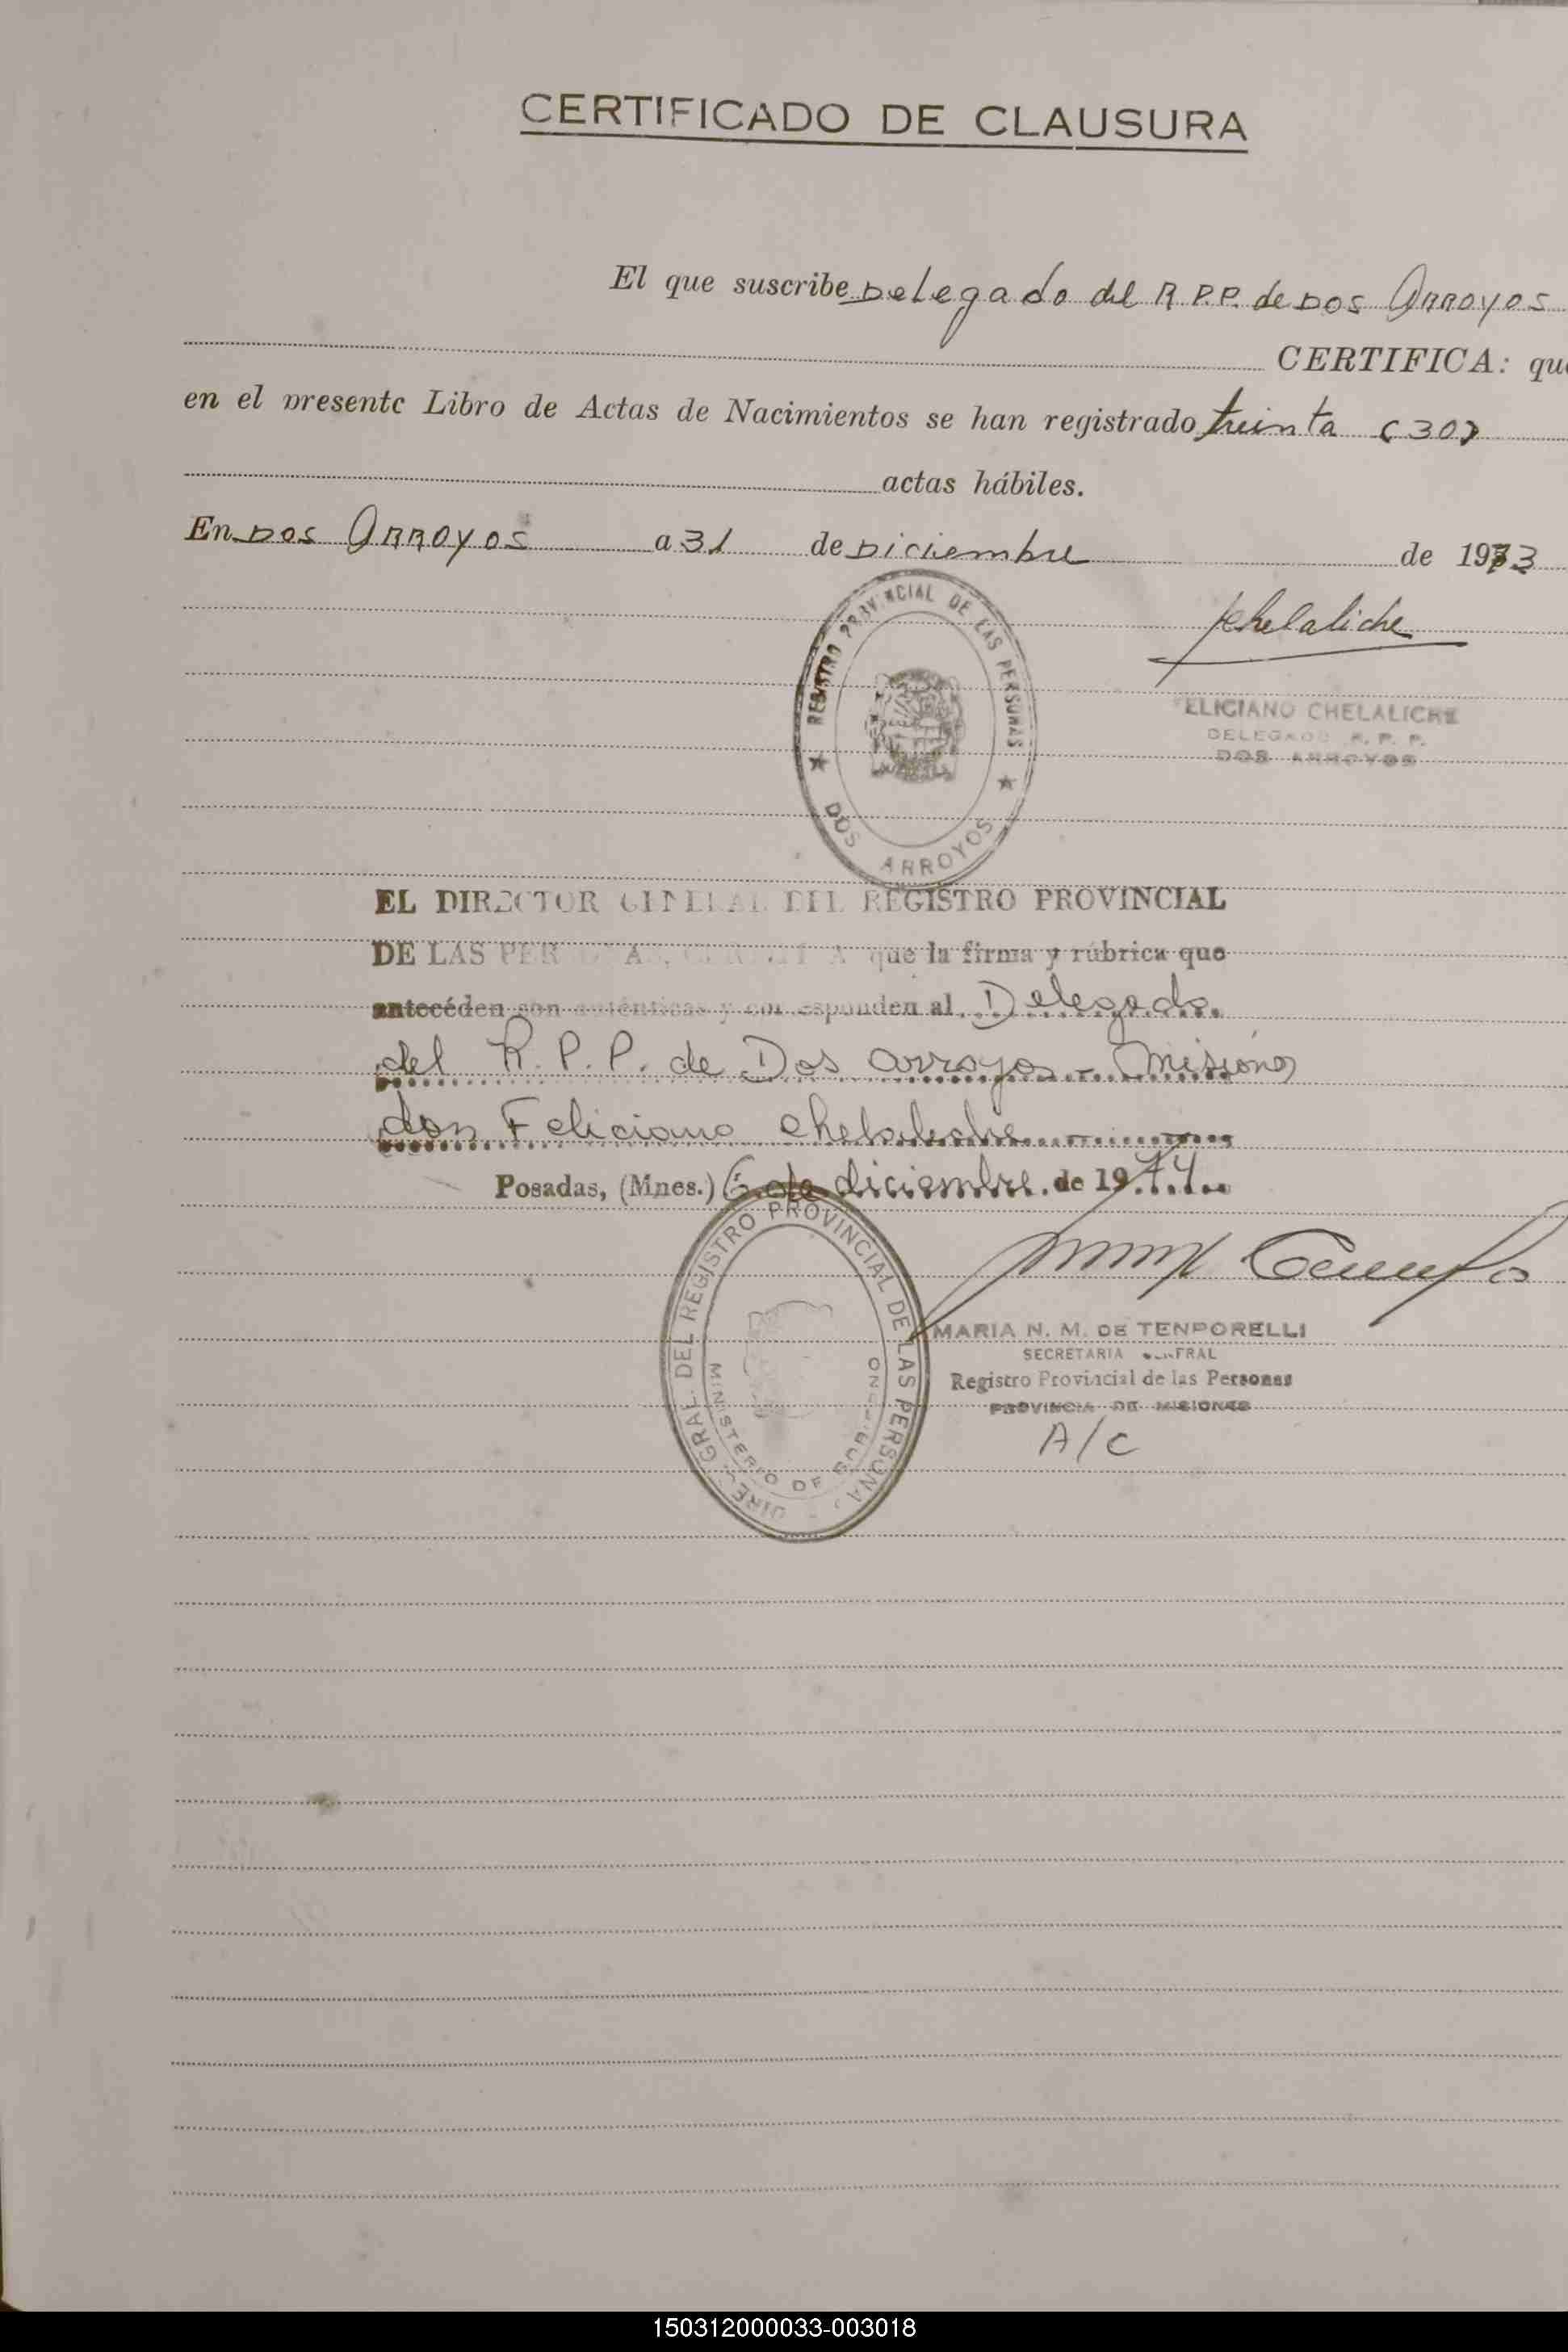 CERTIFICADO DE CLAUSURA
El que suscribe Delegado del R.P.P. de Dos Arroyos
CERTIFICA: que
en el presente Libro de Actas de Nacimientos se han registrado treinta (30)
actas hábiles.
En Dos Arroyos a 31 de Diciembre de 1973
Chelaliche
REGISTRO PROVINCIAL DE LAS PERSONAS
DOS ARROYOS
FELICIANO CHELALICHE
DELEGADO R. P. P.
DOS ARROYOS
EL DIRECTOR GENERAL DEL REGISTRO PROVINCIAL
DE LAS PERSONAS, CERTIFICA que la firma y rúbrica que
antecéden son auténticas y corresponden al Delegado
del R.P.P. de Dos Arroyos - Misiones
don Feliciano Chelaliche
Posadas, (Mnes.) 6 de diciembre de 1974
DIREC. GRAL. DEL REGISTRO PROVINCIAL DE LAS PERSONAS
MINISTERIO DE GOBIERNO
MARIA N. M. DE TENPORELLI
SECRETARIA GENERAL
Registro Provincial de las Personas
PROVINCIA DE MISIONES
A/C
150312000033-003018